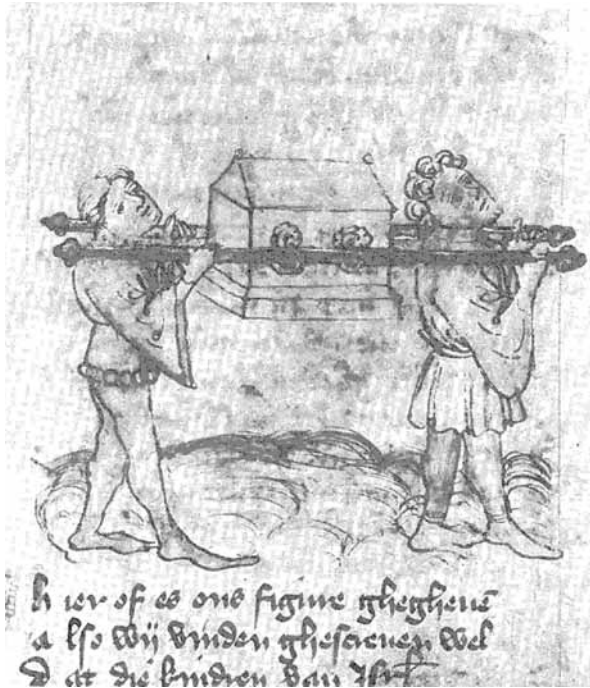 h ier of es ons figure ghegheuē
a lso wij vinden ghescreuen wel
d at die kindren van Isrl